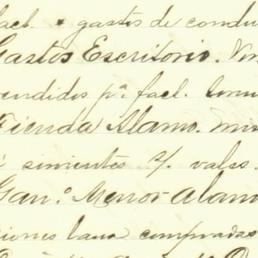 fact. gastos de condu
Gastos Escritorio. Vin
vendidos pª fact.
Tienda Alamo.
simientes s/ vales.
Gan.º Menor Alam
ciones lana compradas